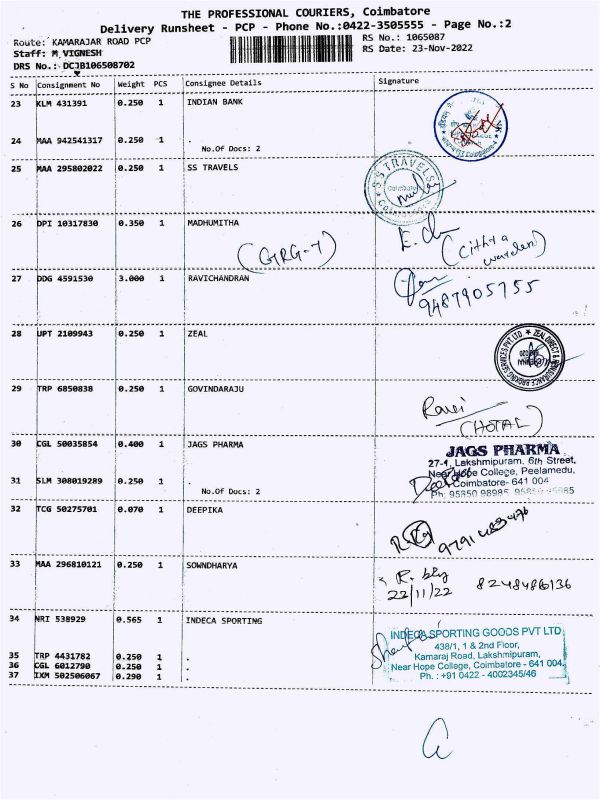 THE PROFESSIONAL COURIERS, Coimbatore
Delivery Runsheet - PCP - Phone No.:0422-3505555 - Page No.:2
Route: KAMARAJAR ROAD PCP
RS No.: 1065087
Staff: M VIGNESH
RS Date: 23-Nov-2022
DRS No.: DCJB106508702
S No Consignment No Weight PCS Consignee Details Signature
23 KLM 431391 0.250 1 INDIAN BANK
24 MAA 942541317 0.250 1 .
No.Of Docs: 2
25 MAA 295802022 0.250 1 SS TRAVELS
SS TRAVELS
Coimbatore
26 DPI 10317830 0.350 1 MADHUMITHA
(GRG-T)
(Cithra
warden)
27 DDG 4591530 3.000 1 RAVICHANDRAN
9487905755
28 UPT 2109943 0.250 1 ZEAL
29 TRP 6850838 0.250 1 GOVINDARAJU
Ravi
(HOTAL)
30 CGL 50035854 0.400 1 JAGS PHARMA
JAGS PHARMA
27-1, Lakshmipuram, 6th Street,
Near Hope College, Peelamedu,
Coimbatore- 641 004
Ph: 95850 98985,
31 SLM 308019289 0.250 1 .
No.Of Docs: 2
32 TCG 50275701 0.070 1 DEEPIKA
33 MAA 296810121 0.250 1 SOWNDHARYA
22/11/22
34 NRI 538929 0.565 1 INDECA SPORTING
INDECA SPORTING GOODS PVT LTD
438/1, 1 & 2nd Floor,
Kamaraj Road, Lakshmipuram,
Near Hope College, Coimbatore - 641 004.
Ph. : +91 0422 - 4002345/46
35 TRP 4431782 0.250 1 .
36 CGL 6012790 0.250 1 .
37 IXM 502506067 0.290 1 .